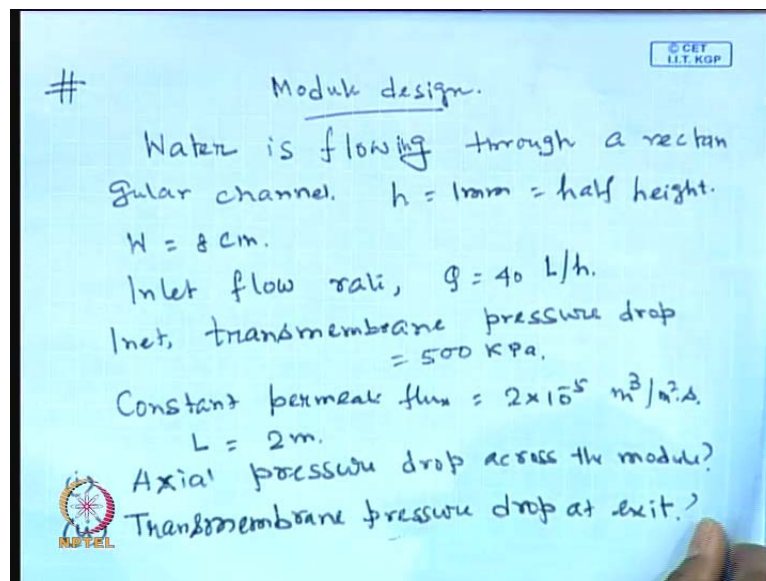 © CET
I.I.T. KGP
# Module design.
Water is flowing through a rectan
gular channel. h = 1mm = half height.
W = 8 cm.
Inlet flow rate, Q = 40 L/h.
Inet, transmembrane pressure drop
= 500 KPa.
Constant permeate flux = 2×10⁻⁵ m³/m².s.
L = 2m.
Axial pressure drop across the module?
Transmembrane pressure drop at exit?
NPTEL